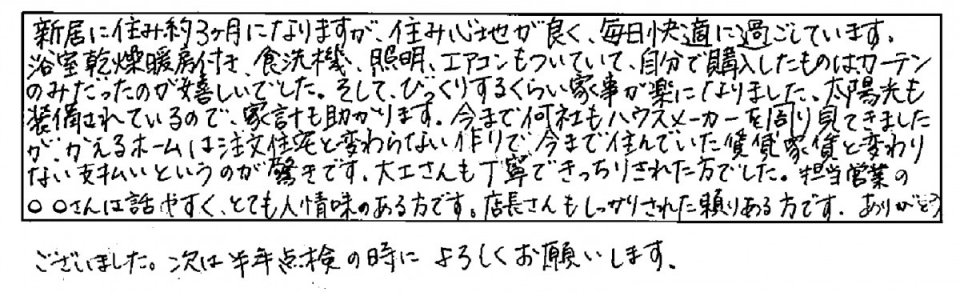 新居に住み約3ヶ月になりますが、住み心地が良く、毎日快適に過ごしています。
浴室乾燥暖房付き、食洗機、照明、エアコンもついていて、自分で購入したものはカーテン
のみだったのが嬉しいでした。そして、びっくりするくらい家事が楽になりました。太陽光も
装備されているので、家計も助かります。今まで何社もハウスメーカーを周り見てきました
が、かえるホームは注文住宅と変わらない作りで、今まで住んでいた賃貸家賃と変わり
ない支払いというのが驚きです。大工さんも丁寧できっちりされた方でした。担当営業の
○○さんは話やすく、とても人情味のある方です。店長さんもしっかりされた頼りある方です。ありがとう
ございました。次は半年点検の時によろしくお願いします。